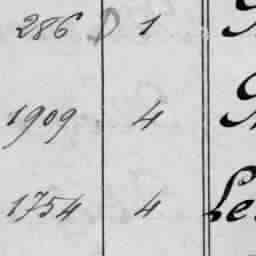 286 D 1
1909 4
1754 4 Le